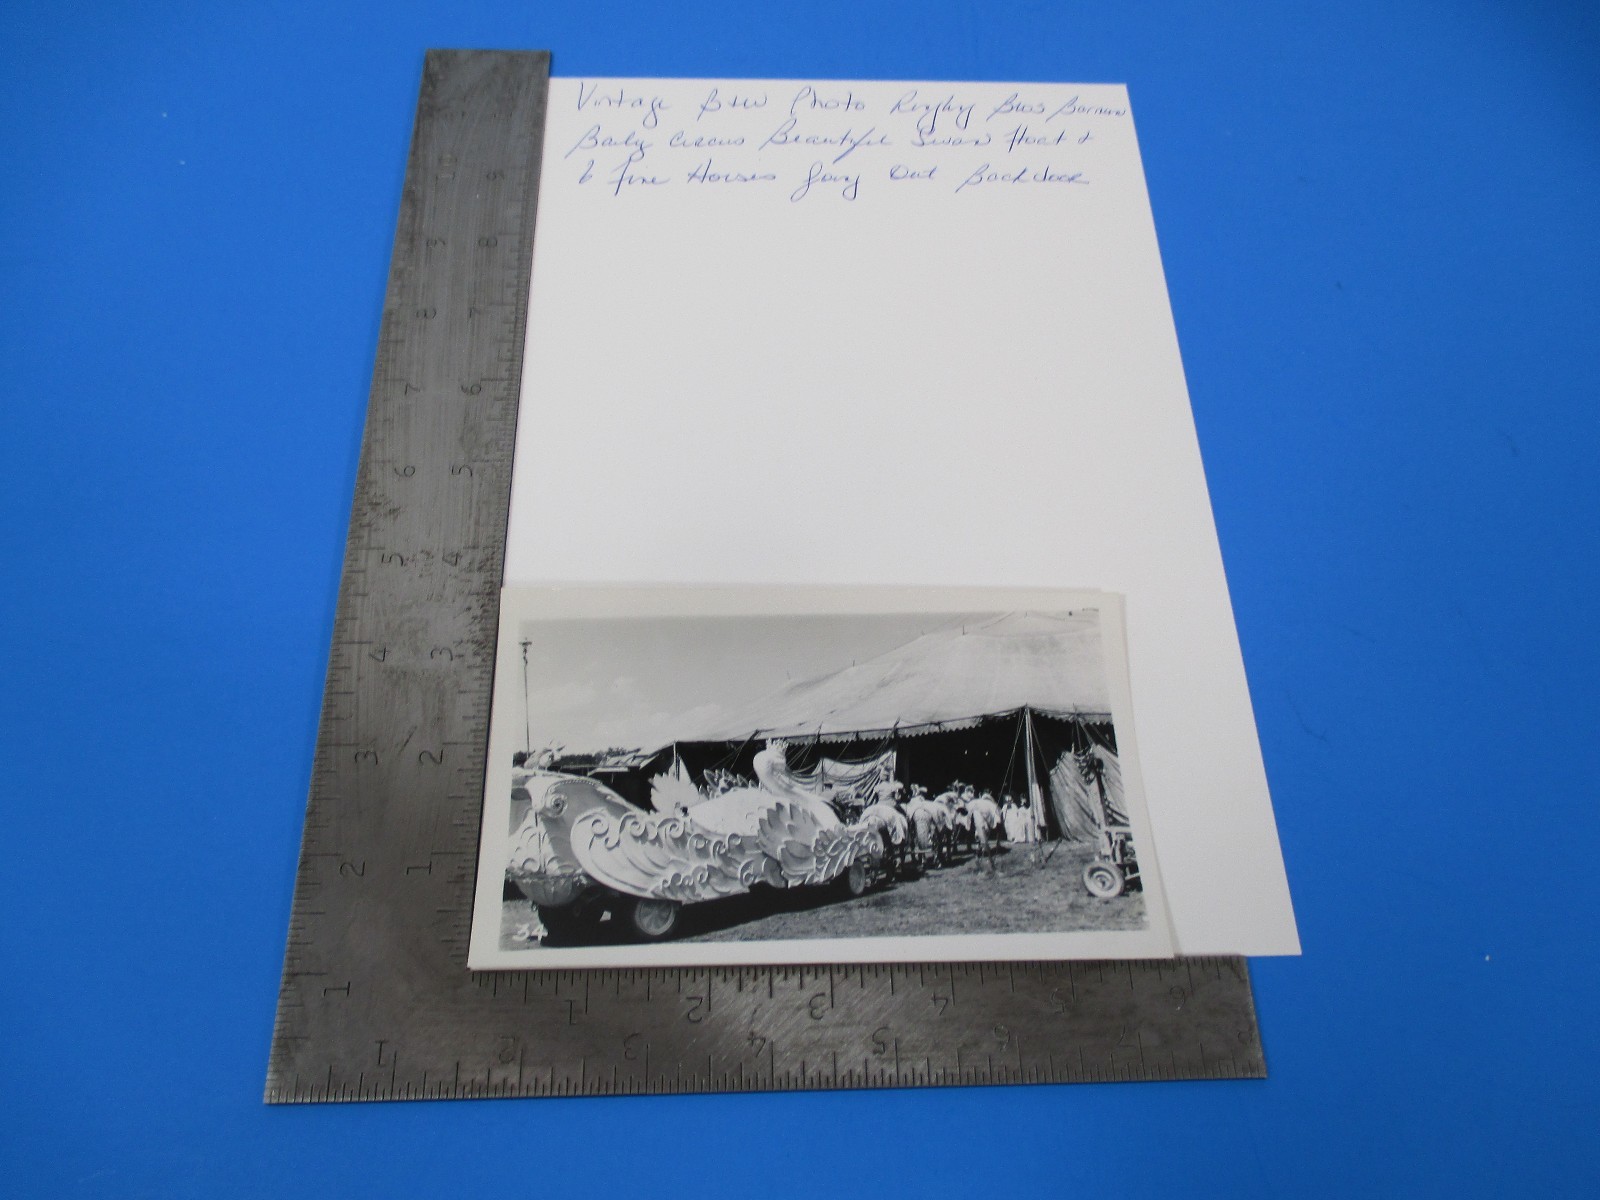 Vintage B+W Photo Ringling Bros Barnum
Baily Circus Beautiful Swan Float &
6 Fine Horses Going Out Backdoor
34
10 9
9 8
8 7
7 6
6 5
5 4
4 3
3 2
2 1
1
1 2 3 4 5 6
1 2 3 4 5 6 7 8